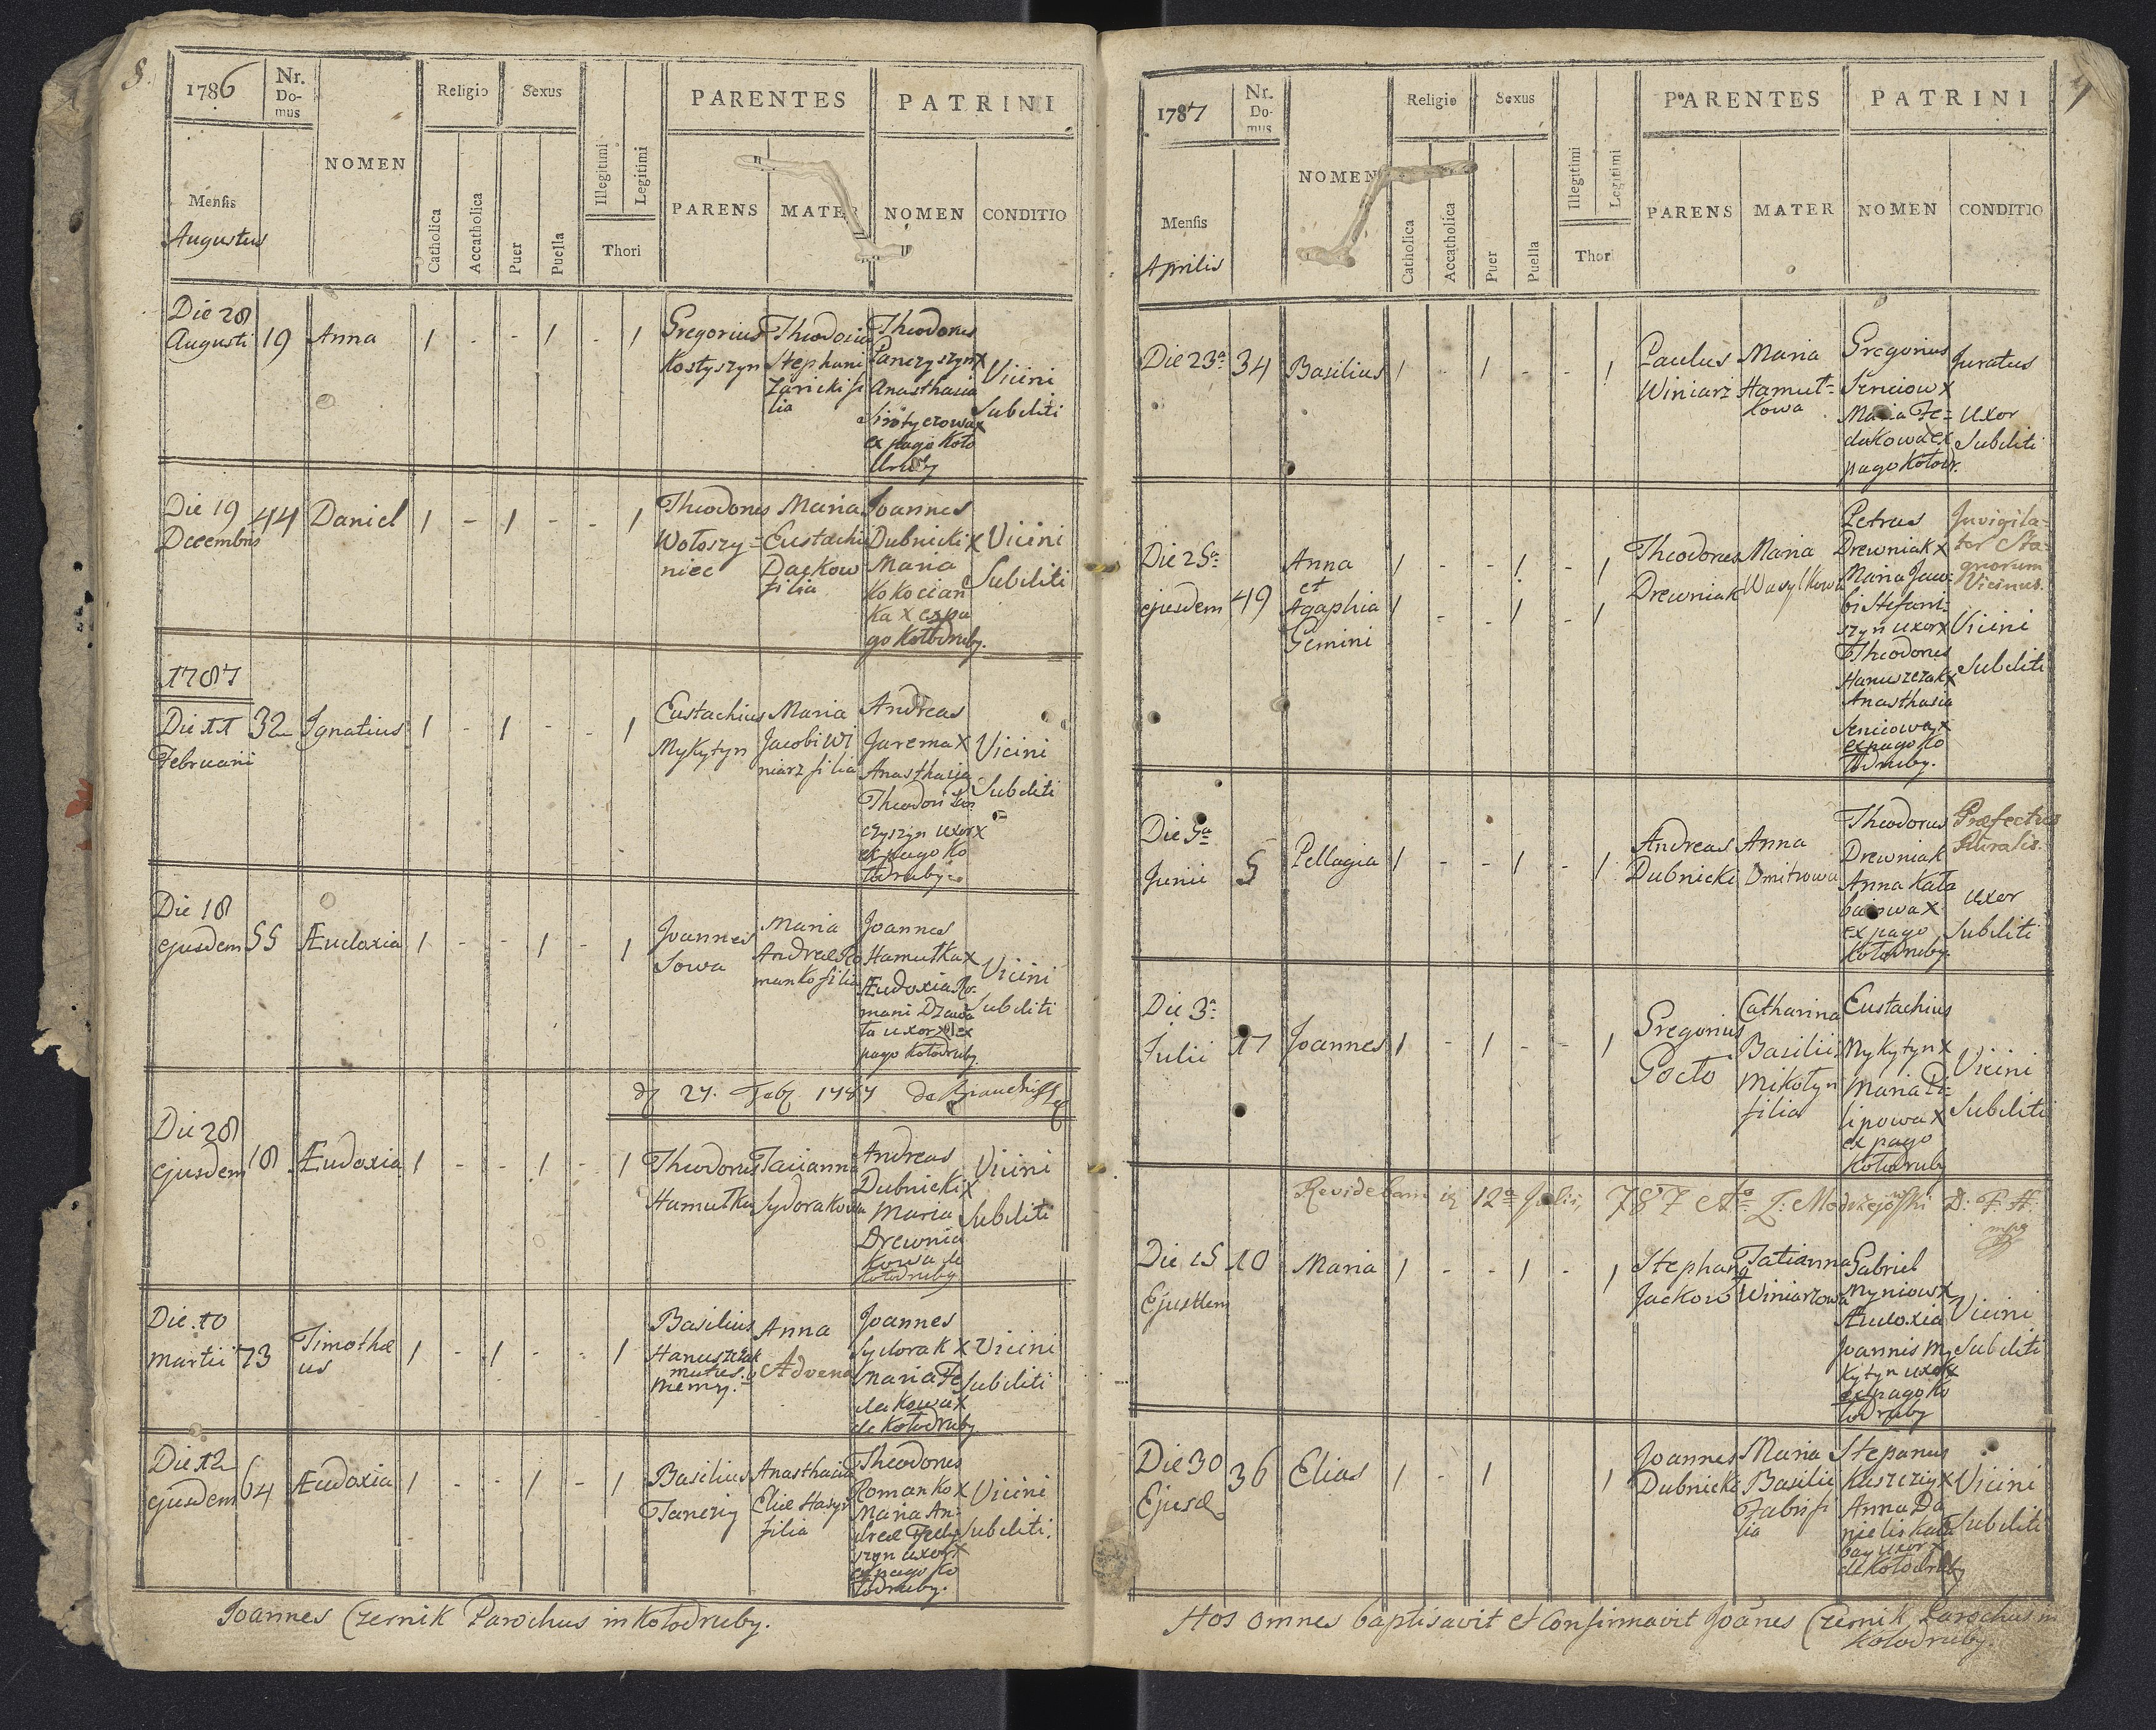 8.
1786
Nr. Do-mus
NOMEN
Religio
Sexus
Illegitimi
Legitimi
PARENTES
PATRINI
Mensis
Augustus
Catholica
Accatholica
Puer
Puella
Thori
PARENS
MATER
NOMEN
CONDITIO
Die 28 Augusti
19
Anna
1 - - 1 - 1
Gregorius Kostyszyn
Theodosia Stephani Zaricki filia
Theodorus Panczyszyn x Anasthasia x ex pago Kołodruby
Vicini Subditi
Die 19 Decembris
44
Daniel
1 - 1 - - 1
Theodorus Wołoszyniec
Maria Eustachii Dackow filia
Joannes Dubnicki x Maria Kokocianka x ex pago Kołodruby.
Vicini Subditi
1787
Die 11 Februarii
32
Ignatius
1 - 1 - - 1
Eustachius Mykytyn
Maria Jacobi Winiarz filia
Andreas Jarema x Anasthasia Theodori uxor x ex pago Kołodruby
Vicini Subditi
Die 18 ejusdem
55
Æudoxia
1 - - 1 - 1
Joannes Sowa
Maria Andreæ Romanko filia
Joannes Hamutka x Æudoxia Romani Dzawała uxor x ex pago Kołodruby
Vicini Subditi
27. Feb 1787
Die 28 ejusdem
18
Æudoxia
1 - - 1 - 1
Theodorus Hamutka
Tatianna Sydorakowa
Andreas Dubnicki x Maria Drewniakowa de Kołodruby
Vicini Subditi
Die 10 Martii
73
Timothæus
1 - 1 - - 1
Basilius Hanuszczak
Anna Advena
Joannes Sydorak x Maria Fedakowa x de Kołodruby
Vicini Subditi
Die 12 ejusdem
64
Æudoxia
1 - - 1 - 1
Basilius
Anasthasia Eliæ filia
Theodorus Romanko x Maria Andreæ uxor x ex pago Kołodruby.
Vicini Subditi.
Joannes Czernik Parochus in Kołodruby.
7
1787
Nr. Do-mus
NOMEN
Religio
Sexus
Illegitimi
Legitimi
PARENTES
PATRINI
Mensis
Aprilis
Catholica
Accatholica
Puer
Puella
Thori
PARENS
MATER
NOMEN
CONDITIO
Die 23a
34
Basilius
1 - 1 - - 1
Paulus Winiarz
Maria Hamut=kowa
Gregorius Seniow x Maria Fe=dakowa ex pago Kołodr.
Juratus Uxor Subditi
Die 25a ejusdem
49
Anna et Agaphia Gemini
1 - - 1 - 1
1 - - 1 - 1
Theodorus Drewniak
Maria Wasylkowa
Petrus Drewniak x Maria Jacobi Stefaniszyn uxor x Theodorus Hanuszczak x Anasthasia Seniowa x ex pago Kołodruby.
Invigilator Stagnorum Vicinus. Vicini Subditi
Die 5a Junii
5
Pellagia
1 - - 1 - 1
Andreas Dubnicki
Anna Dmitrowa
Theodorus Drewniak Anna x ex pago Kołodruby
Præfectus Ruralis. uxor Subditi
Die 3a Julii
17
Joannes
1 - 1 - - 1
Gregorius Pocło
Catharina Basilii Mikołyn filia
Eustachius Mykytyn x Maria Filipowa x ex pago Kołodruby
Vicini Subditi
Revidebam 12a Julii, 787
Die 15 Ejusdem
10
Maria
1 - - 1 - 1
Stephanus Jackow
Tatianna Winiarzowa
Gabriel Myniow x Æudoxia Joannis Mykytyn uxor x ex pago Kołodruby
Vicini Subditi
Die 30 Ejusd
36
Elias
1 - 1 1
Joannes Dubnicki
Maria Basilii filia
Stepanus x Anna Danielis uxor x de Kołodruby
Vicini Subditi
Hos omnes baptisavit et Confirmavit Joanes Czernik Parochus in Kołodruby.